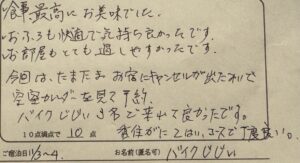 ・食事、最高においしかったです。
・おふろも快適で気持ち良かったです。
・お部屋もとても過しやすかったです。
今回は、たまたまお宿にキャンセルが出たれいで
空室カレンダーを見て予約、
バイクじじい3名で来れて良かったです。
10点満点で 10 点
ご宿泊日 1/3~4. お名前(匿名可) バイクじじい